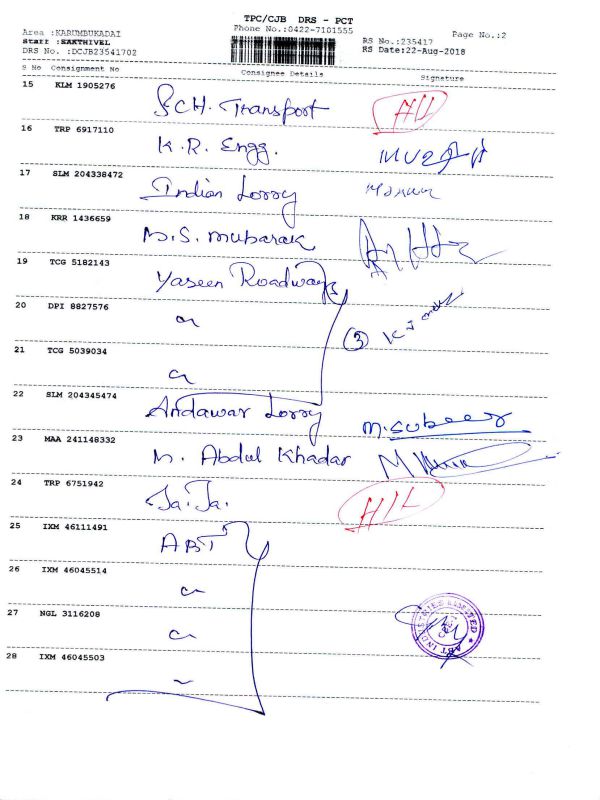 TPC/CJB DRS - PCT
Phone No.:0422-7101555
Page No.:2
Area :KARUMBUKADAI
Staff :SAKTHIVEL
DRS No. :DCJB23541702
RS No.:235417
RS Date:22-Aug-2018
S No Consignment No Consignee Details Signature
15 KLM 1905276 SCH. Transport
16 TRP 6917110 K.R. Engg.
17 SLM 204338472 Indian Lorry
18 KRR 1436659 M.S. Mubarak
19 TCG 5182143 Yaseen Roadways
20 DPI 8827576
3
21 TCG 5039034
22 SLM 204345474 Andawar Lorry M.Subeer
23 MAA 241148332 M. Abdul Khadar
24 TRP 6751942 Ja.Ja.
25 IXM 46111491 ABT
26 IXM 46045514
27 NGL 3116208
ABT INDUSTRIES LIMITED
28 IXM 46045503